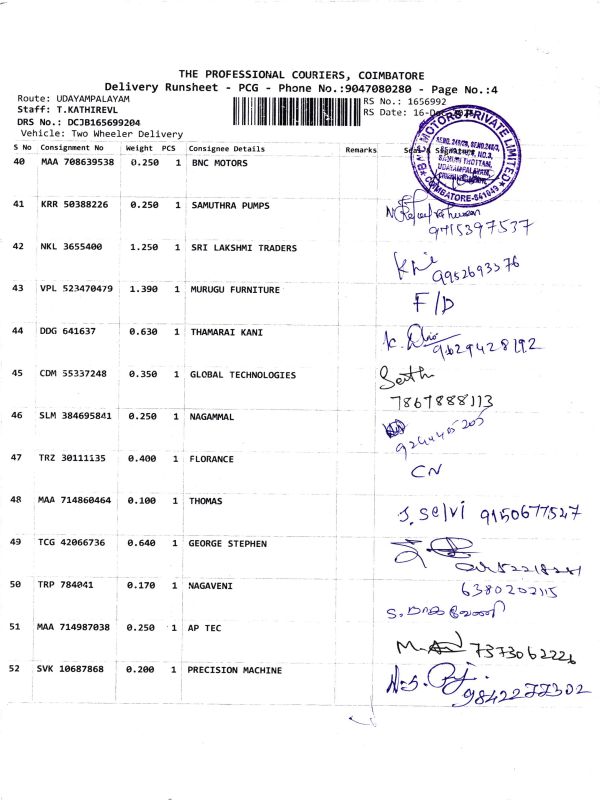 THE PROFESSIONAL COURIERS, COIMBATORE
Delivery Runsheet - PCG - Phone No.:9047080280 - Page No.:4
Route: UDAYAMPALAYAM
Staff: T.KATHIREVL
DRS No.: DCJB165699204
Vehicle: Two Wheeler Delivery
RS No.: 1656992
RS Date: 16-Dec
S No Consignment No Weight PCS Consignee Details Remarks Seal & Signature
40 MAA 708639538 0.250 1 BNC MOTORS
MOTORS PRIVATE LIMITED
UDAYAMPALAYAM,
COIMBATORE-641049
41 KRR 50388226 0.250 1 SAMUTHRA PUMPS
9715397537
42 NKL 3655400 1.250 1 SRI LAKSHMI TRADERS
9952693376
43 VPL 523470479 1.390 1 MURUGU FURNITURE
F/D
44 DDG 641637 0.630 1 THAMARAI KANI
9629428192
45 CDM 55337248 0.350 1 GLOBAL TECHNOLOGIES
7867888113
46 SLM 384695841 0.250 1 NAGAMMAL
9244405205
47 TRZ 30111135 0.400 1 FLORANCE
CN
48 MAA 714860464 0.100 1 THOMAS
J. Selvi 9150677527
49 TCG 42066736 0.640 1 GEORGE STEPHEN
50 TRP 784041 0.170 1 NAGAVENI
6380202115
S. நாகவேணி
51 MAA 714987038 0.250 1 AP TEC
7373062226
52 SVK 10687868 0.200 1 PRECISION MACHINE
9842277302